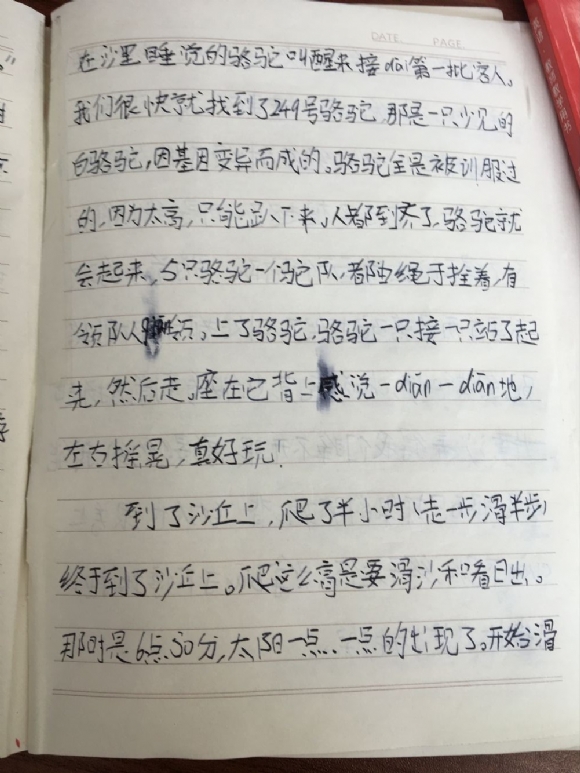 DATE PAGE
在沙里睡觉的骆驼叫醒来接dai第一批客人。
我们很快就找到了249号骆驼,那是一只少见的
白骆驼,因基因变异而成的。骆驼全是被训服过
的,因为太高,只能趴下来,人都到齐了,骆驼就
会起来,5只骆驼一个驼队,都由绳子拴着,有
领队人领。上了骆驼,骆驼一只接一只站了起
来,然后走。座在它背上感觉一diān一diān地,
左右摇晃,真好玩!
到了沙丘上,爬了半小时(走一步滑半步)
终于到了沙丘上。爬这么高是要滑沙和看日出。
那时是6点50分,太阳一点、一点的出现了。开始滑